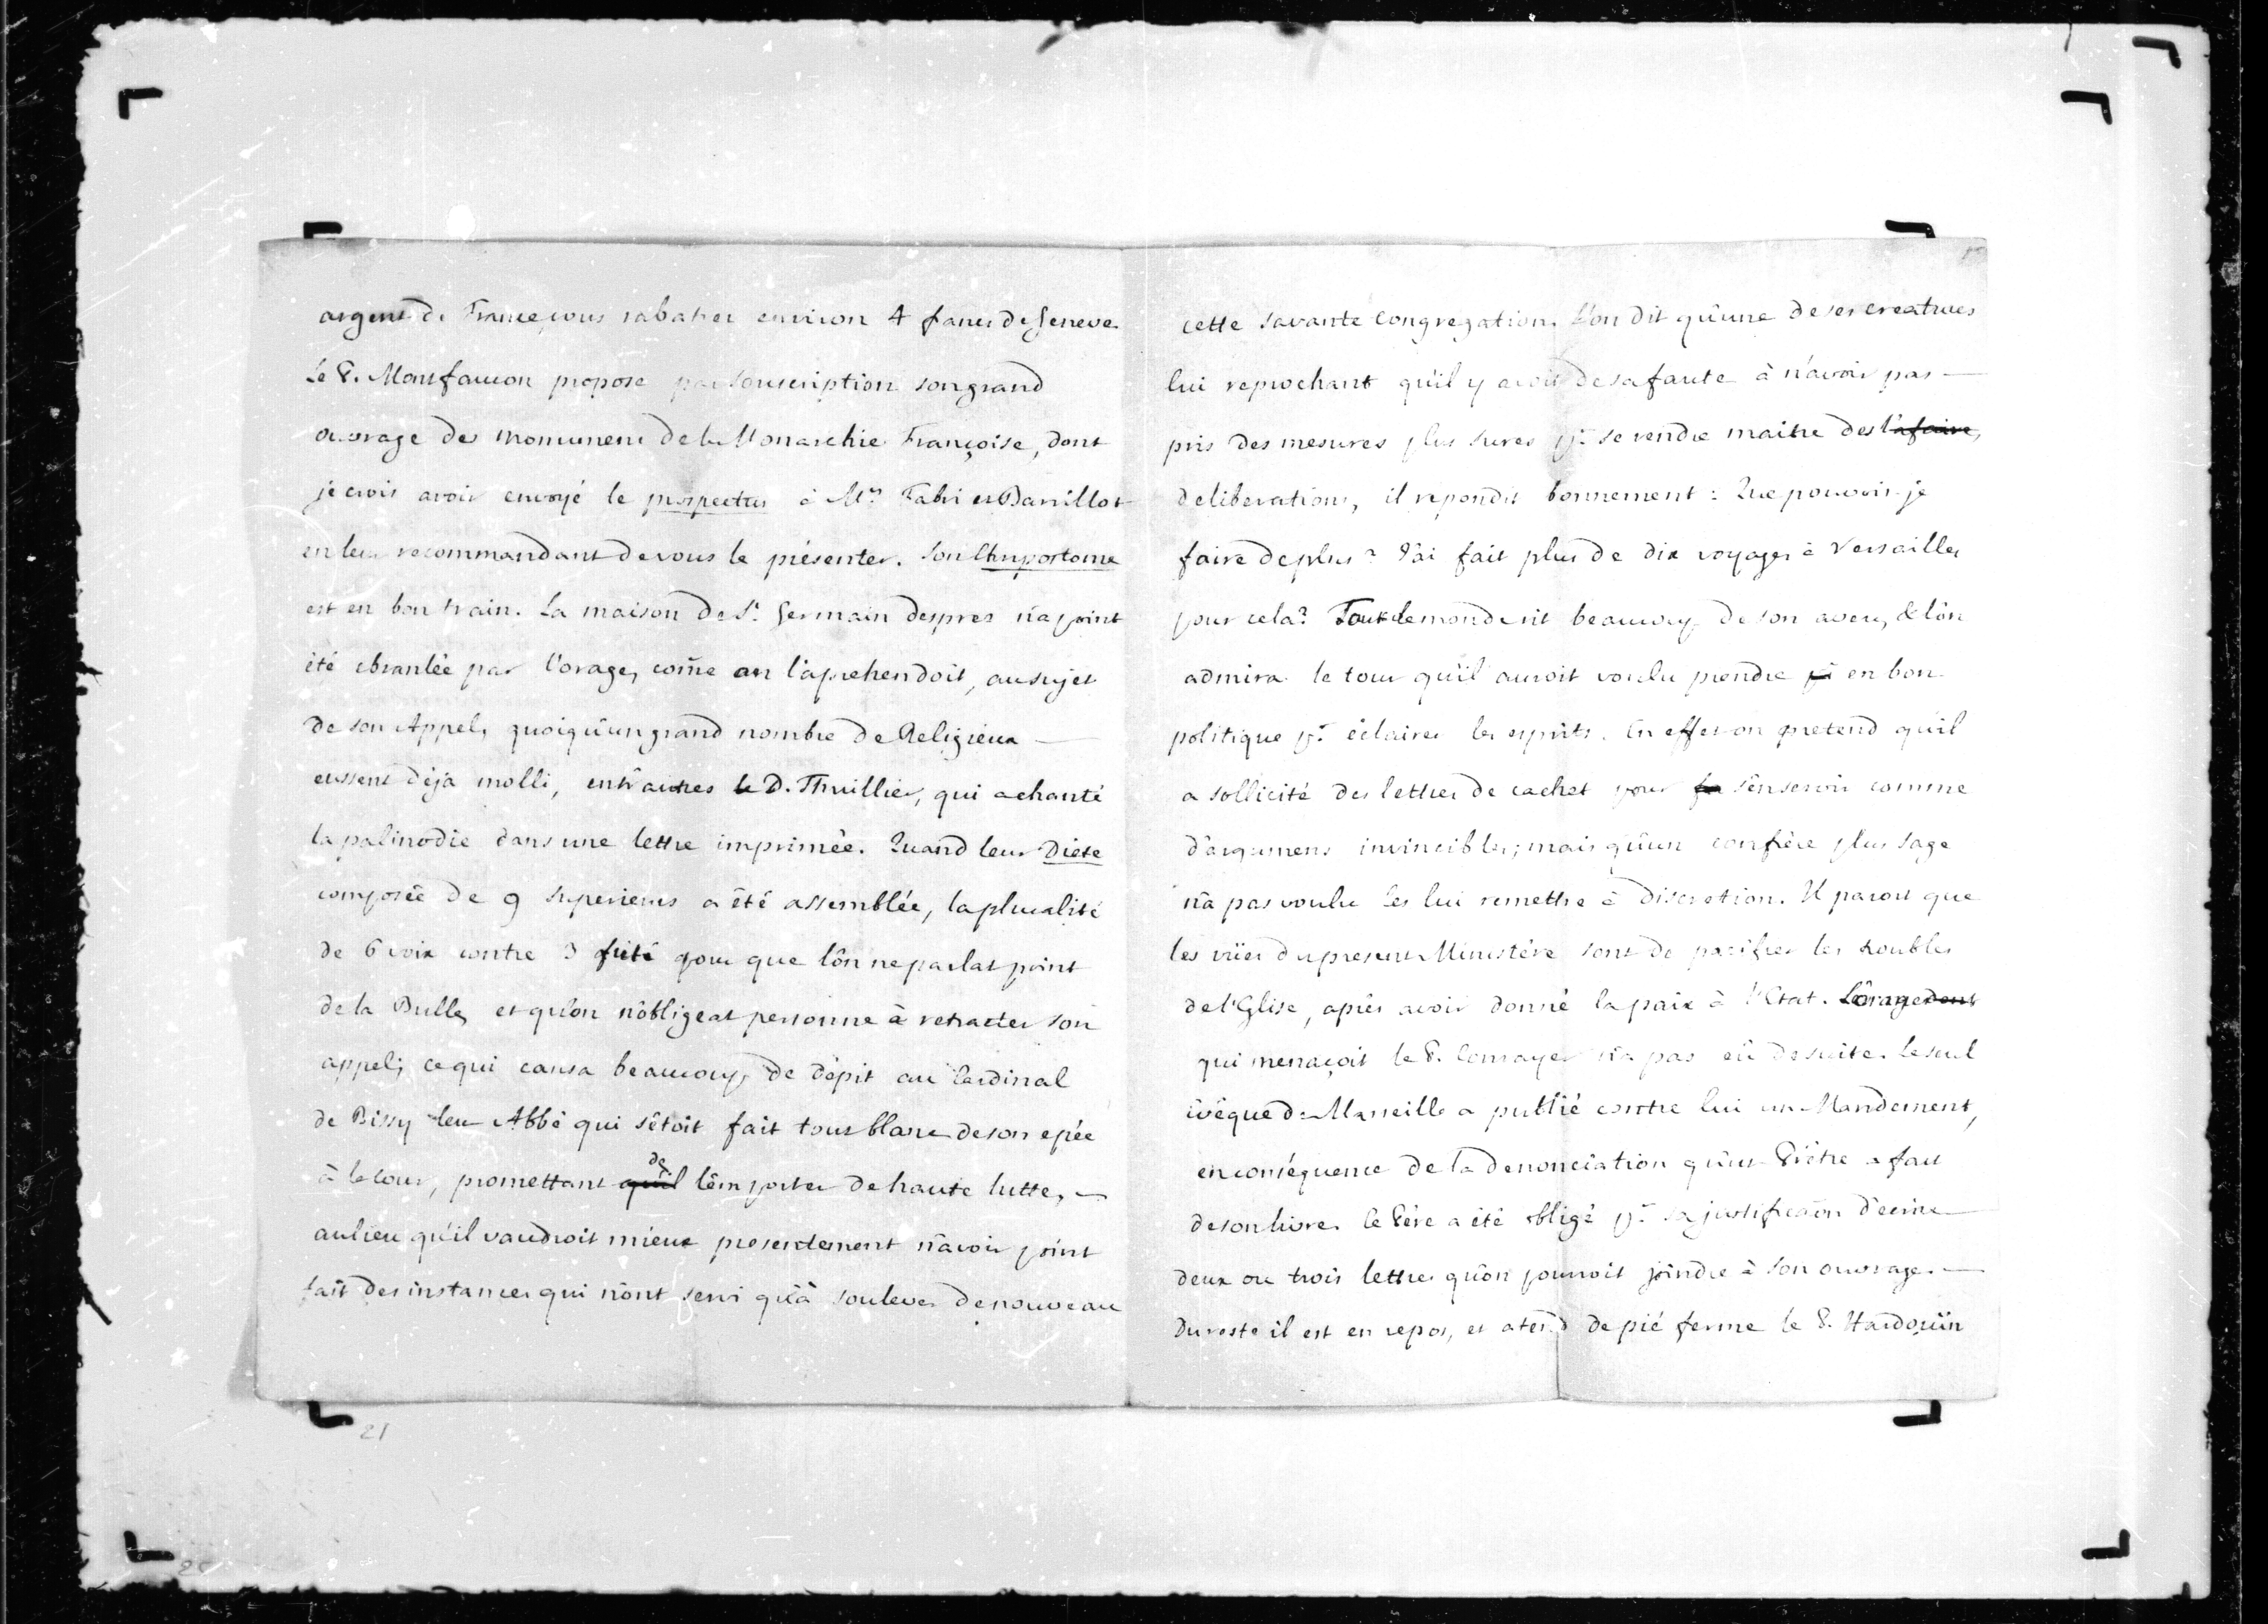 argent de France, vous rabatrez environ 4 francs de Geneve
Le P. Montfaucon propose par souscription son grand
ouvrage des monumens de la Monarchie Françoise, dont
je crois avoir envoyé le prospectus à Mrs Fabri et Barrillot
en leur recommandant de vous le présenter. Son Chrysostome
est en bon train. La maison de St. Germain des pres n'a point
été ebranlée par l'orage, come on l'aprehendoit, au sujet
de son Appel, quoiqu'un grand nombre de Religieux —
eussent déja molli, entr'autres le D. Thuillier, qui a chanté
la palinodie dans une lettre imprimée. Quand leur Diete
composée de 9 superieurs a été assemblée, la pluralité
de 6 voix contre 3 pour que l'on ne parlat point
de la Bulle, et qu'on n'obligeat personne à retracter son
appel; ce qui causa beaucoup de dépit au Cardinal
de Bissy leur Abbé qui s'étoit fait tout blanc de son epée
à la cour, promettant qu'il de l'emporter de haute lutte, —
au lieu qu'il vaudroit mieux presentement n'avoir point
fait des instances qui n'ont servi qu'à soulever de nouveau
cette savante congregation. L'on dit qu'une de ses creatures
lui reprochant qu'il y avoit de sa faute à n'avoir pas —
pris des mesures plus sures pr. se rendre maitre des l'afaire,
deliberations, il repondit bonnement : Que pouvois-je
faire de plus? J'ai fait plus de dix voyages à Versailles
pour cela? Tout le monde rit beaucoup de son aveu, & l'on
admira le tour qu'il auroit voulu prendre en bon
politique pr. éclairer les esprits. En effet on pretend qu'il
a sollicité des lettres de cachet pour s'en servir comme
d'argumens invincibles; mais qu'un confrére plus sage
n'a pas voulu les lui remettre à discretion. Il paroit que
les vües du present Ministére sont de pacifier les troubles
de l'Eglise, aprés avoir donné la paix à l'Etat. L'orage dont
qui menaçoit le P. Courayer n'a pas eû de suite. Le seul
évêque de Marseille a publié contre lui un Mandement,
en conséquence de la denonciation qu'un Prêtre a fait
de son livre. Le Pére a été obligé pr. sa justification d'écrire
deux ou trois lettres qu'on pourroit joindre à son ouvrage. —
Du reste il est en repos, et atend de pié ferme le P. Hardoüin
21